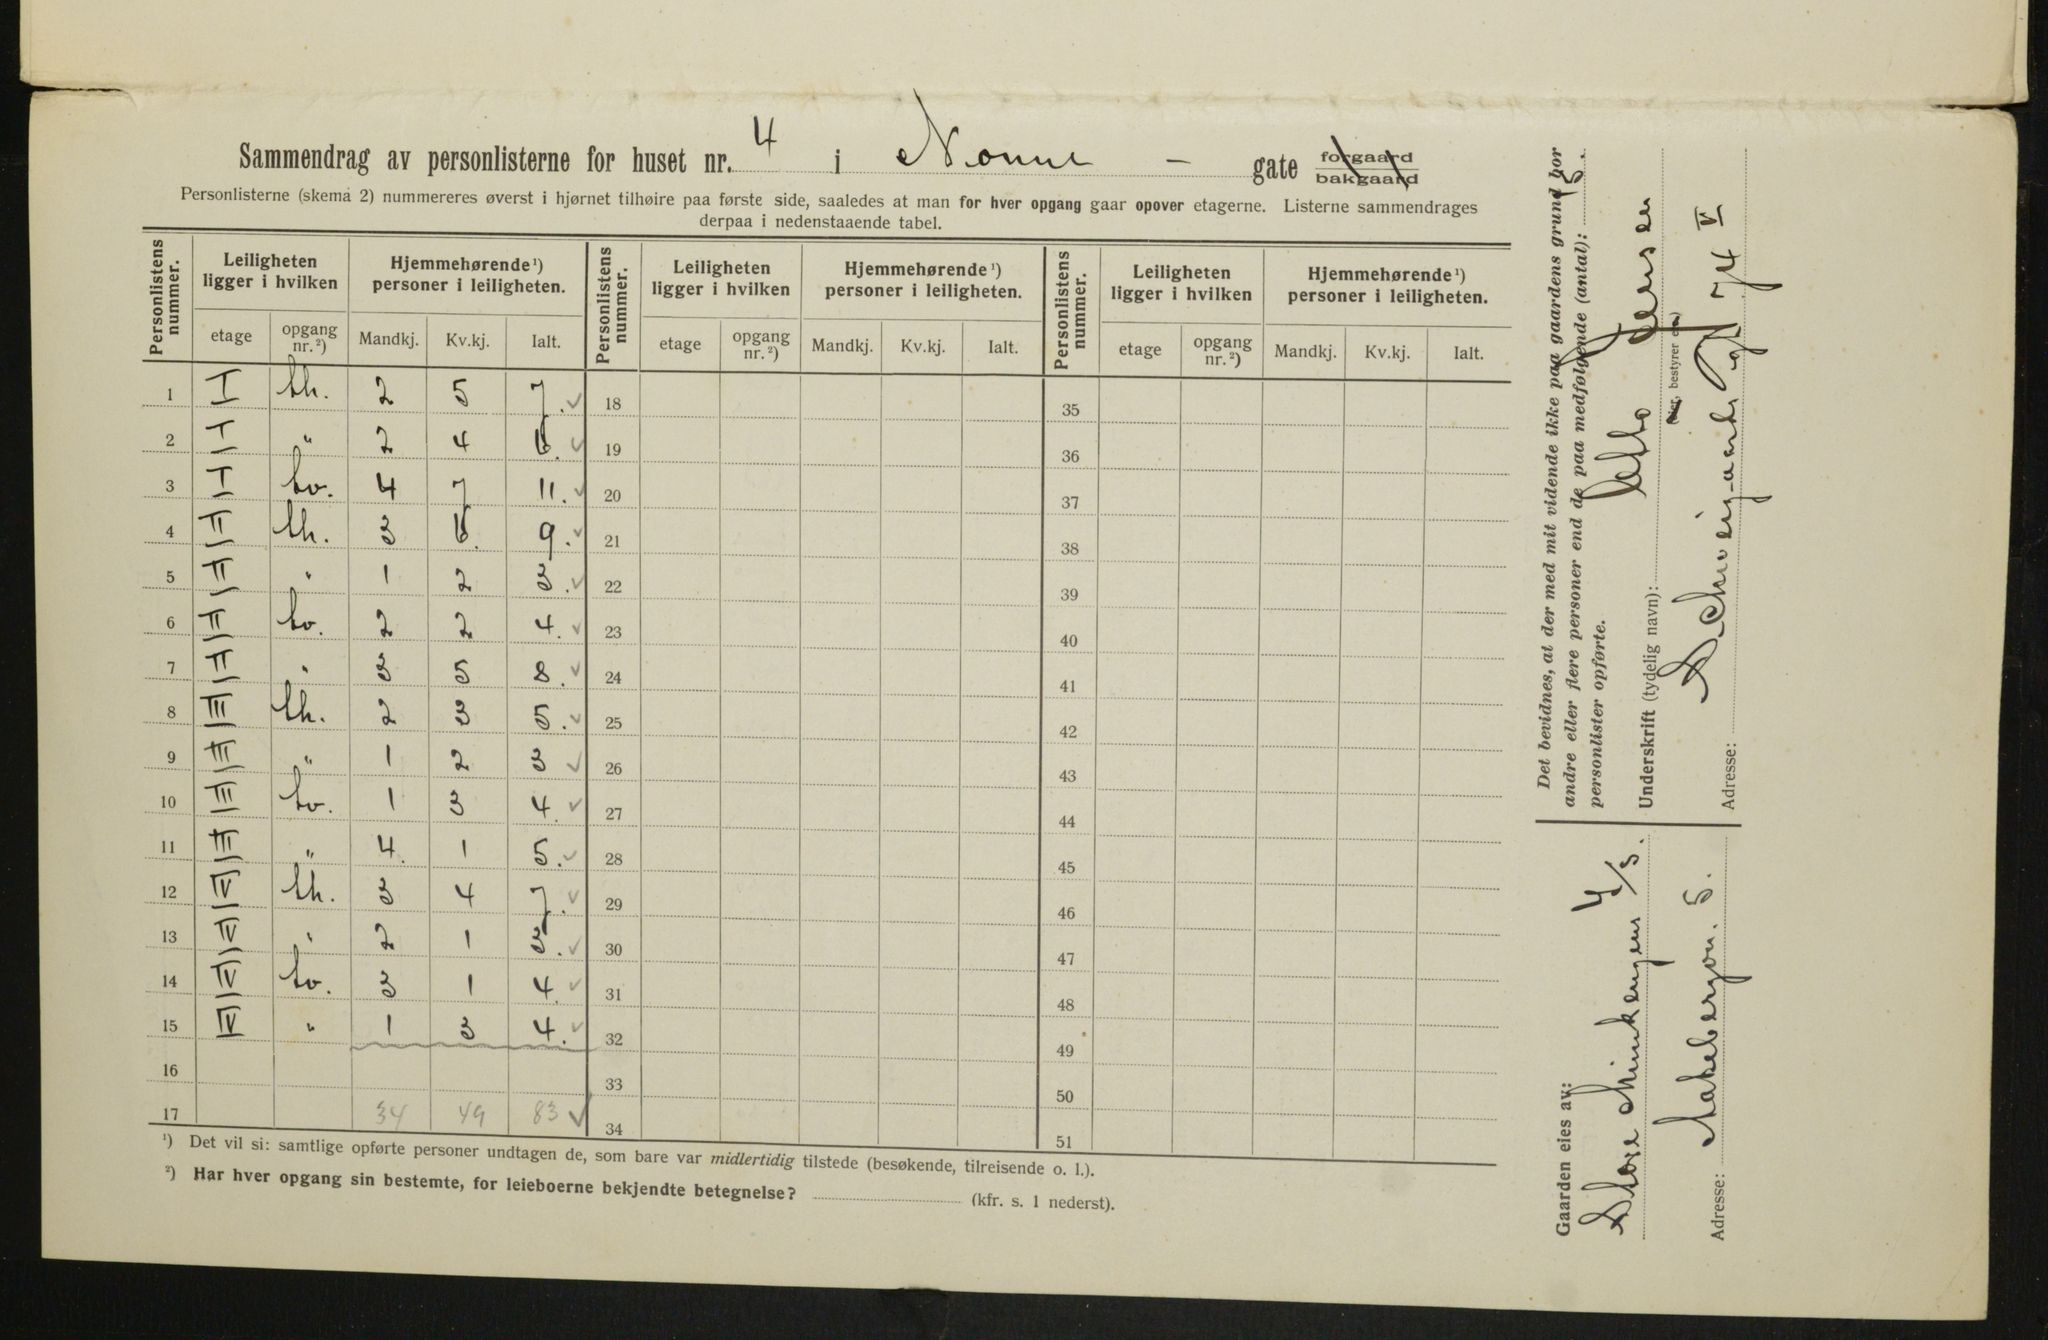 Sammendrag av personlisterne for huset nr. 4 i Nonne - gate forgaard bakgaard
Personlisterne (skema 2) nummereres øverst i hjørnet tilhøire paa første side, saaledes at man for hver opgang gaar opover etagerne. Listerne sammendrages
derpaa i nedenstaaende tabel.
Personlistens nummer. Leiligheten ligger i hvilken Hjemmehørende ¹) personer i leiligheten. Personlistens nummer. Leiligheten ligger i hvilken Hjemmehørende ¹) personer i leiligheten. Personlistens nummer. Leiligheten ligger i hvilken Hjemmehørende ¹) personer i leiligheten.
etage opgang nr. ²) Mandkj. Kv.kj. Ialt. etage opgang nr. ²) Mandkj. Kv.kj. Ialt. etage opgang nr. ²) Mandkj. Kv.kj. Ialt.
1 I th. 2 5 7. ✓ 18 35
2 I " 2 4 6. ✓ 19 36
3 I tv. 4 7 11. ✓ 20 37
4 II th. 3 6. 9. ✓ 21 38
5 II " 1 2 3. ✓ 22 39
6 II tv. 2 2 4. ✓ 23 40
7 II " 3 5 8. ✓ 24 41
8 III th. 2 3 5. ✓ 25 42
9 III " 1 2 3 ✓ 26 43
10 III tv. 1 3 4. ✓ 27 44
11 III " 4. 1 5. ✓ 28 45
12 IV th. 3 4 7. ✓ 29 46
13 IV " 2 1 3. ✓ 30 47
14 IV tv. 3 1 4. ✓ 31 48
15 IV " 1 3 4. ✓ 32 49
16 33 50
17 34 49 83 ✓ 34 51
¹) Det vil si: samtlige opførte personer undtagen de, som bare var midlertidig tilstede (besøkende, tilreisende o. l.).
²) Har hver opgang sin bestemte, for leieboerne bekjendte betegnelse? (kfr. s. 1 nederst).
Det bevidnes, at der med mit vidende ikke paa gaardens grund bor
andre eller flere personer end de paa medfølgende (antal): 15.
personlister opførte.
Underskrift (tydelig navn): Otto Jensen
(eier, bestyrer etc)
Adresse: Schweigaardsgt 74 V
Gaarden eies av:
4/5.
Adresse: Aakebergvn. 5.